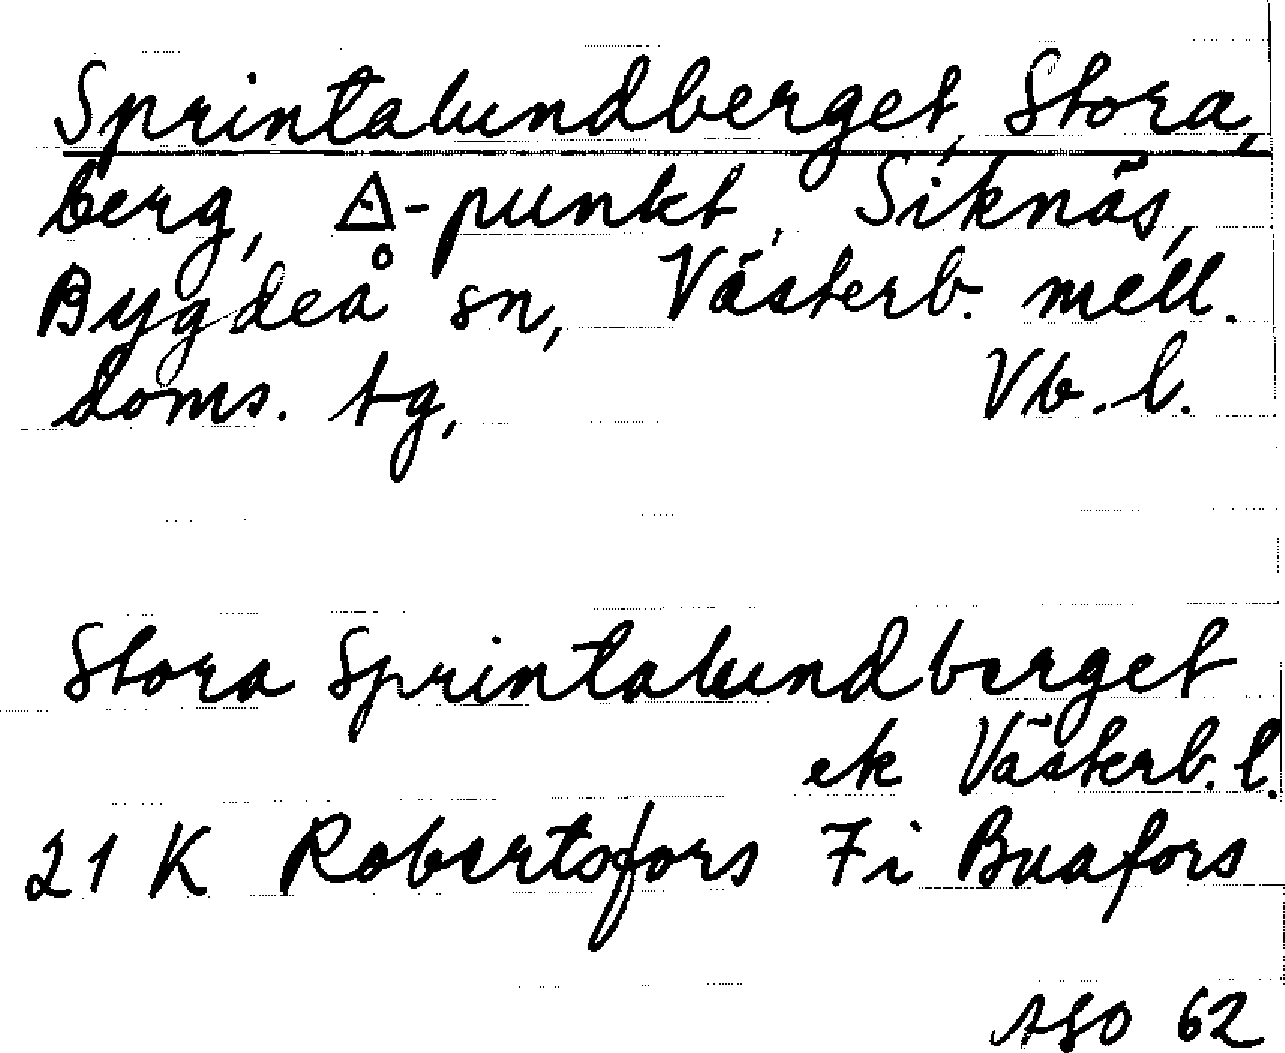 Sprintalundberget, Stora,
berg, △-punkt, Siknäs,
Bygdeå sn, Västerb. mell.
doms. tg, Vb. l.
Stora Sprintalundberget
ek Västerb. l.
21 K Robertsfors 7i Buafors
62